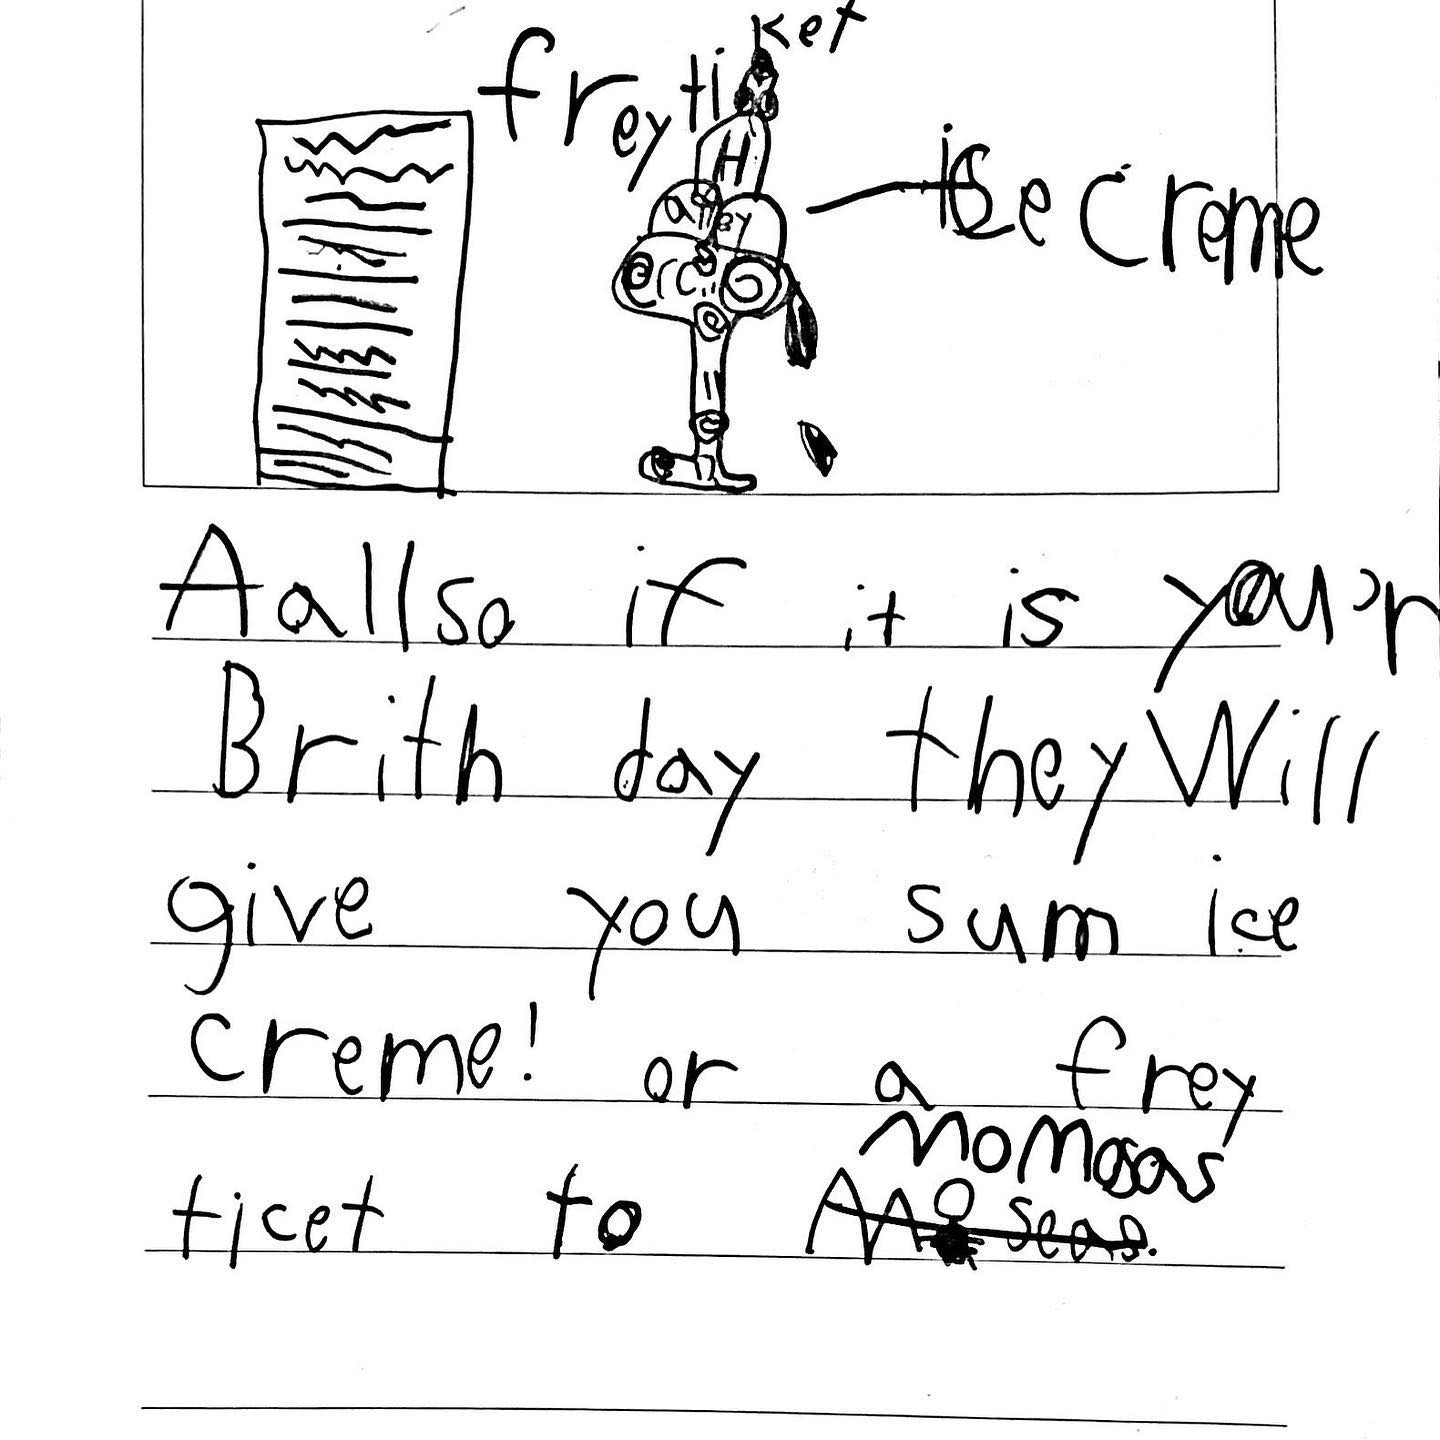 frey ticket
ice creme
H
Aallso if it is you'r
Brith day they Will
give you sum ice
creme! or a frey
Momosas
ticet to